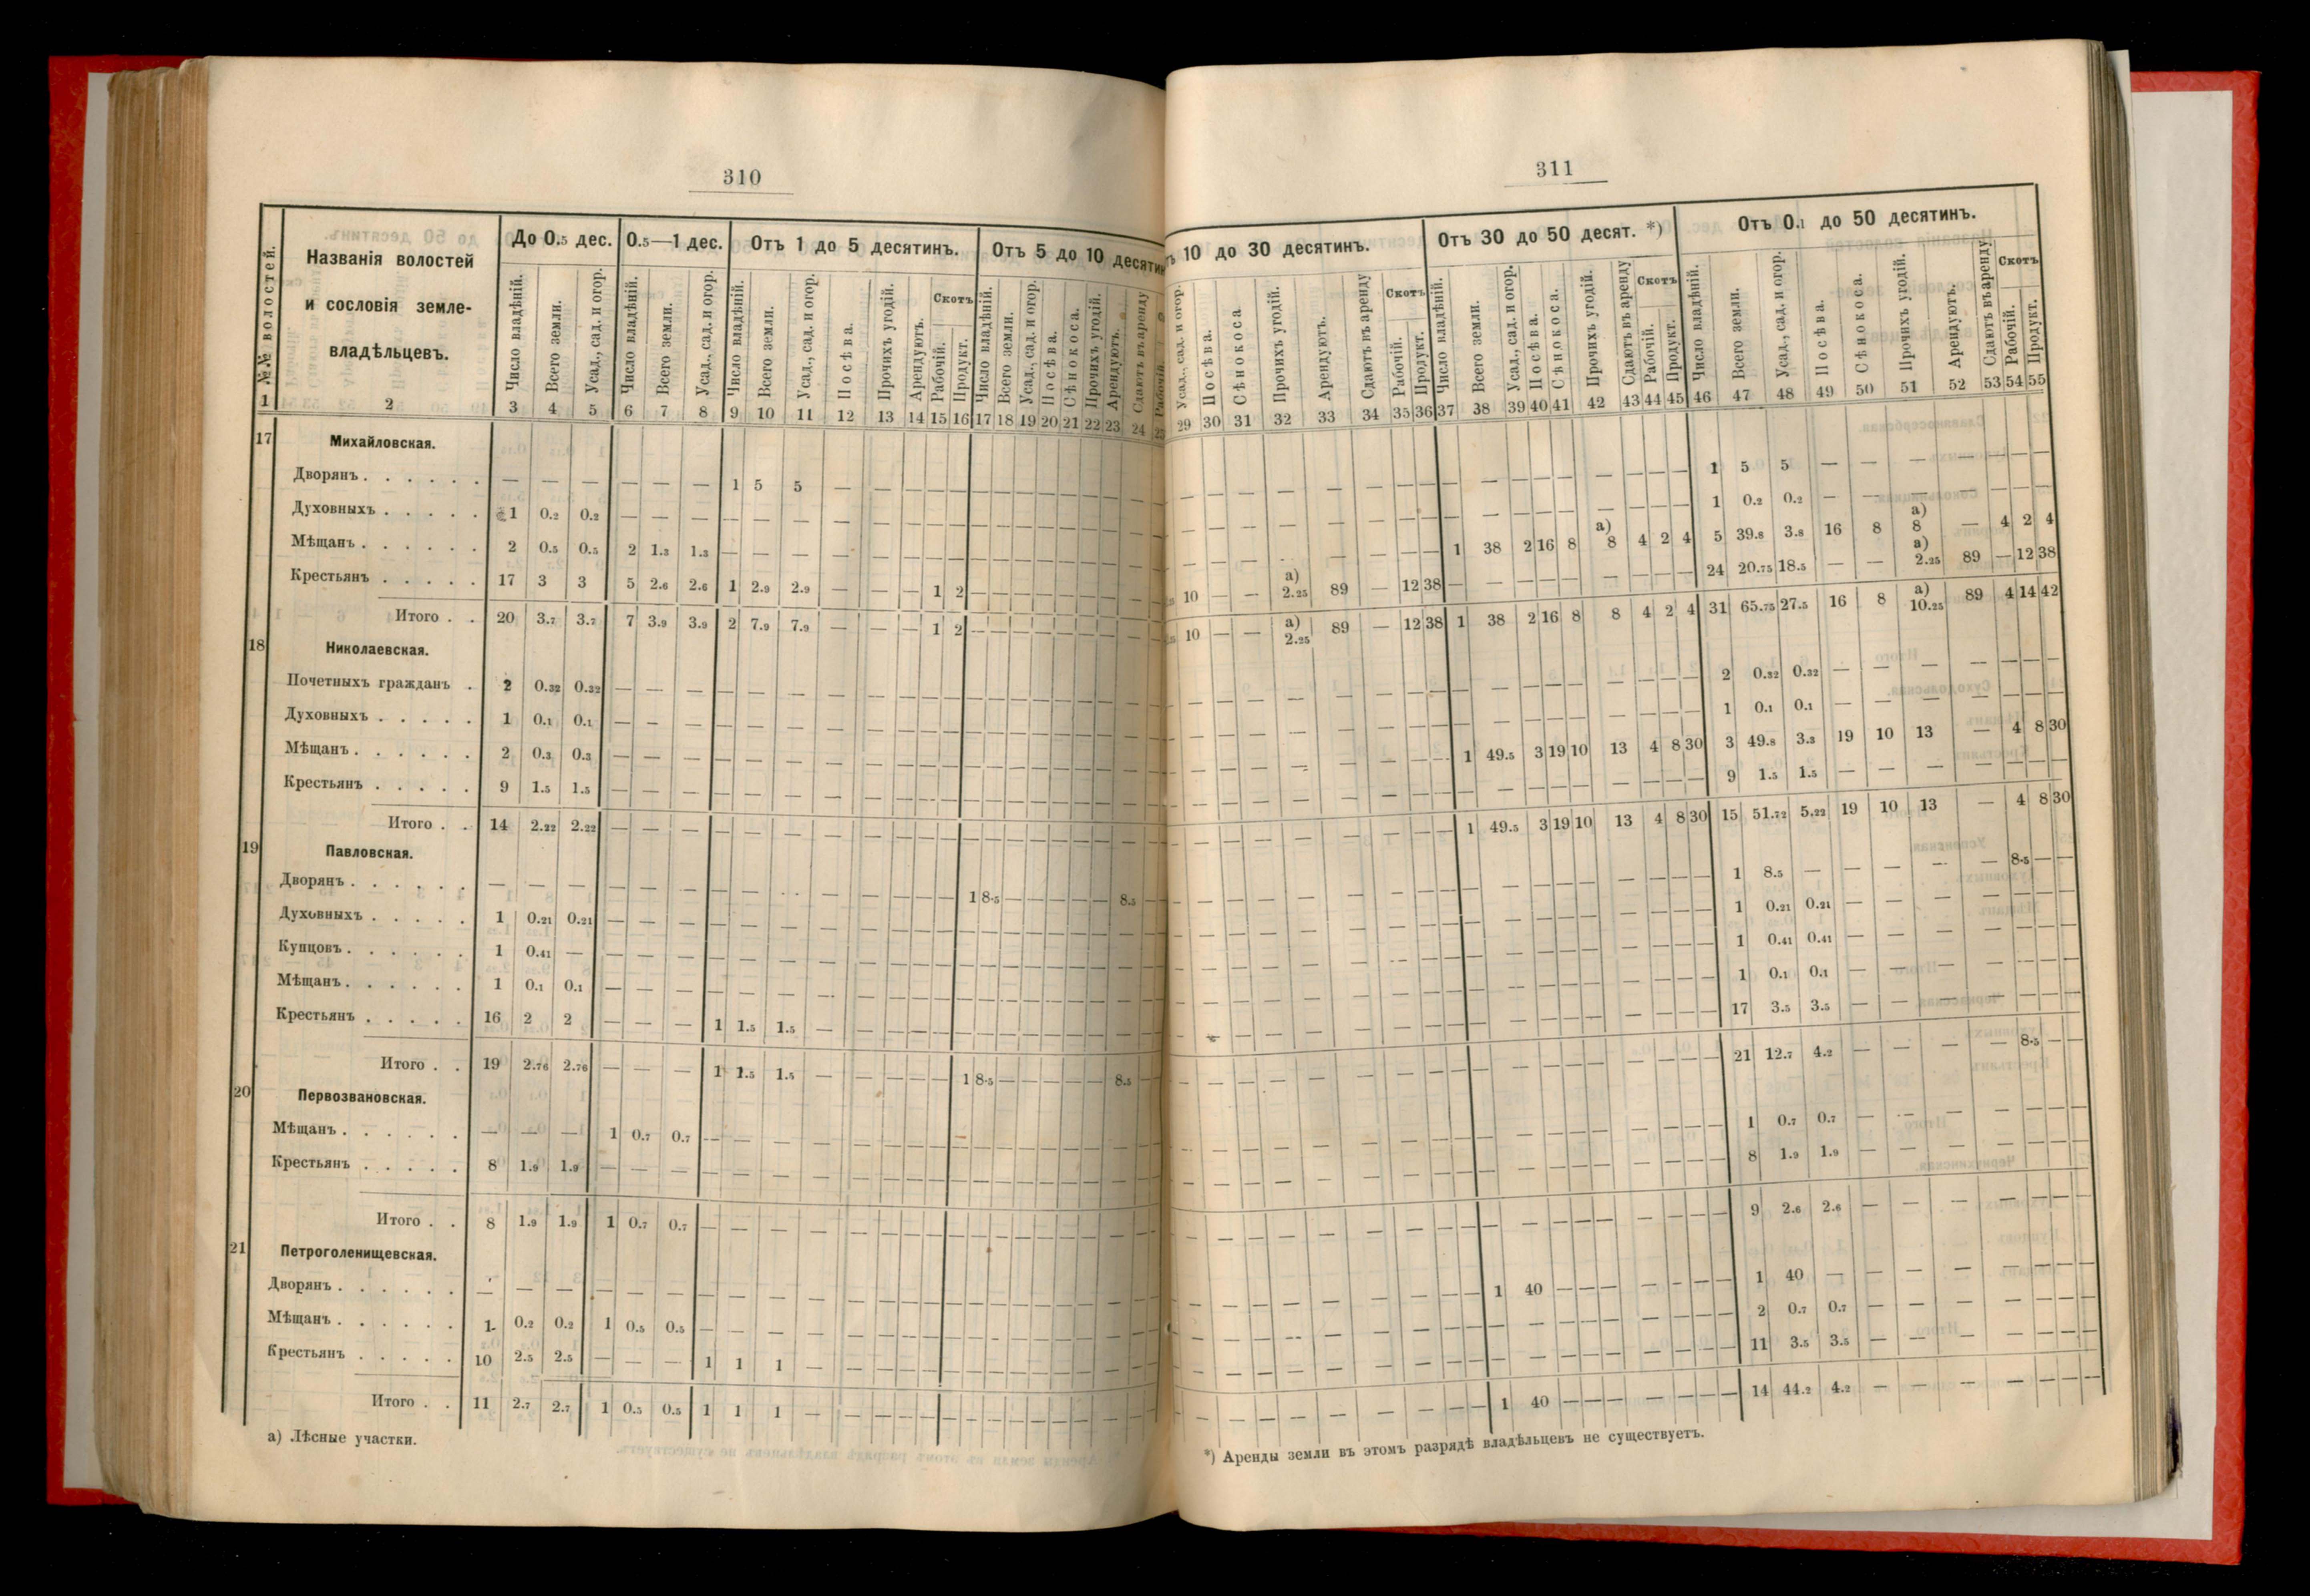 310
№№ волостей.
Названія волостей
и сословія земле-
владѣльцевъ.
До 0.5 дес.
0.5—1 дес.
Отъ 1 до 5 десятинъ.
Отъ 5 до 10 десятин
Число владѣній. Всего земли. Усад., сад. и огор.
Число владѣній. Всего земли. Усад., сад. и огор.
Число владѣній. Всего земли. Усад., сад. и огор. Посѣва. Прочихъ угодій. Арендуютъ. Скотъ Рабочій. Продукт.
Число владѣній. Всего земли. Усад., сад. и огор. Посѣва. Сѣнокоса. Прочихъ угодій. Арендуютъ. Сдаютъ въ аренду Рабочій.
1 2 3 4 5 6 7 8 9 10 11 12 13 14 15 16 17 18 19 20 21 22 23 24
17 Михайловская.
Дворянъ . . . . . . — — — — — — 1 5 5 — — — — — — — — — — — — —
Духовныхъ . . . . . 1 0.2 0.2 — — — — — — — — — — — — — — — — — — —
Мѣщанъ . . . . . . 2 0.5 0.5 2 1.3 1.3 — — — — — — — — — — — — — — — —
Крестьянъ . . . . . 17 3 3 5 2.6 2.6 1 2.9 2.9 — — — 1 2 — — — — — — — —
Итого . . 20 3.7 3.7 7 3.9 3.9 2 7.9 7.9 — — — 1 2 — — — — — — — —
18 Николаевская.
Почетныхъ гражданъ . 2 0.32 0.32 — — — — — — — — — — — — — — — — — — —
Духовныхъ . . . . . 1 0.1 0.1 — — — — — — — — — — — — — — — — — — —
Мѣщанъ . . . . . . 2 0.3 0.3 — — — — — — — — — — — — — — — — — — —
Крестьянъ . . . . . 9 1.5 1.5 — — — — — — — — — — — — — — — — — — —
Итого . . 14 2.22 2.22 — — — — — — — — — — — — — — — — — — —
19 Павловская.
Дворянъ . . . . . . — — — — — — — — — — — — — — 1 8.5 — — — — — 8.5
Духовныхъ . . . . . 1 0.21 0.21 — — — — — — — — — — — — — — — — — — —
Купцовъ . . . . . . 1 0.41 — — — — — — — — — — — — — — — — — — — —
Мѣщанъ . . . . . . 1 0.1 0.1 — — — — — — — — — — — — — — — — — — —
Крестьянъ . . . . . 16 2 2 — — — 1 1.5 1.5 — — — — — — — — — — — — —
Итого . . 19 2.76 2.76 — — — 1 1.5 1.5 — — — — — 1 8.5 — — — — — 8.5
20 Первозвановская.
Мѣщанъ . . . . . . — — — 1 0.7 0.7 — — — — — — — — — — — — — — — —
Крестьянъ . . . . . 8 1.9 1.9 — — — — — — — — — — — — — — — — — — —
Итого . . 8 1.9 1.9 1 0.7 0.7 — — — — — — — — — — — — — — — —
21 Петроголенищевская.
Дворянъ . . . . . . — — — — — — — — — — — — — — — — — — — — — —
Мѣщанъ . . . . . . 1 0.2 0.2 1 0.5 0.5 — — — — — — — — — — — — — — — —
Крестьянъ . . . . . 10 2.5 2.5 — — — 1 1 1 — — — — — — — — — — — — —
Итого . . 11 2.7 2.7 1 0.5 0.5 1 1 1 — — — — — — — — — — — — —
а) Лѣсные участки.
311
10 до 30 десятинъ.
Отъ 30 до 50 десят. *)
Отъ 0.1 до 50 десятинъ.
Усад., сад. и огор. Посѣва. Сѣнокоса Прочихъ угодій. Арендуютъ. Сдаютъ въ аренду Скотъ Рабочій. Продукт.
Число владѣній. Всего земли. Усад., сад. и огор. Посѣва. Сѣнокоса. Прочихъ угодій. Сдаютъ въ аренду Скотъ Рабочій. Продукт.
Число владѣній. Всего земли. Усад., сад. и огор. Посѣва. Сѣнокоса. Прочихъ угодій. Арендуютъ. Сдаютъ въ аренду. Скотъ Рабочій. Продукт.
29 30 31 32 33 34 35 36 37 38 39 40 41 42 43 44 45 46 47 48 49 50 51 52 53 54 55
— — — — — — — — — — — — — — — — — 1 5 5 — — — — — — —
— — — — — — — — — — — — — — — — — 1 0.2 0.2 — — — — — — —
— — — — — — — — 1 38 2 16 8 а) 8 4 2 4 5 39.8 3.8 16 8 а) 8 — 4 2 4
10 — — а) 2.25 89 — 12 38 — — — — — — — — — 24 20.75 18.5 — — а) 2.25 89 — 12 38
10 — — а) 2.25 89 — 12 38 1 38 2 16 8 8 4 2 4 31 65.75 27.5 16 8 а) 10.25 89 4 14 42
— — — — — — — — — — — — — — — — — 2 0.32 0.32 — — — — — — —
— — — — — — — — — — — — — — — — — 1 0.1 0.1 — — — — — — —
— — — — — — — — 1 49.5 3 19 10 13 4 8 30 3 49.8 3.3 19 10 13 — 4 8 30
— — — — — — — — — — — — — — — — — 9 1.5 1.5 — — — — — — —
— — — — — — — — 1 49.5 3 19 10 13 4 8 30 15 51.72 5.22 19 10 13 — 4 8 30
— — — — — — — — — — — — — — — — — 1 8.5 — — — — — 8.5 — —
— — — — — — — — — — — — — — — — — 1 0.21 0.21 — — — — — — —
— — — — — — — — — — — — — — — — — 1 0.41 0.41 — — — — — — —
— — — — — — — — — — — — — — — — — 1 0.1 0.1 — — — — — — —
— — — — — — — — — — — — — — — — — 17 3.5 3.5 — — — — — — —
— — — — — — — — — — — — — — — — — 21 12.7 4.2 — — — — 8.5 — —
— — — — — — — — — — — — — — — — — 1 0.7 0.7 — — — — — — —
— — — — — — — — — — — — — — — — — 8 1.9 1.9 — — — — — — —
— — — — — — — — — — — — — — — — — 9 2.6 2.6 — — — — — — —
— — — — — — — — 1 40 — — — — — — — 1 40 — — — — — — — —
— — — — — — — — — — — — — — — — — 2 0.7 0.7 — — — — — — —
— — — — — — — — — — — — — — — — — 11 3.5 3.5 — — — — — — —
— — — — — — — — 1 40 — — — — — — — 14 44.2 4.2 — — — — — — —
*) Аренды земли въ этомъ разрядѣ владѣльцевъ не существуетъ.